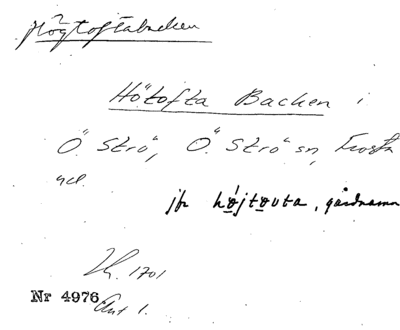 Högtoftabacken
Hötofta Backen i
Ö. Strö, Ö. Strö sn, Frosta
hd.
jfr höjtovta, gårdnamn
1701
Nr 4976 Akt 1.